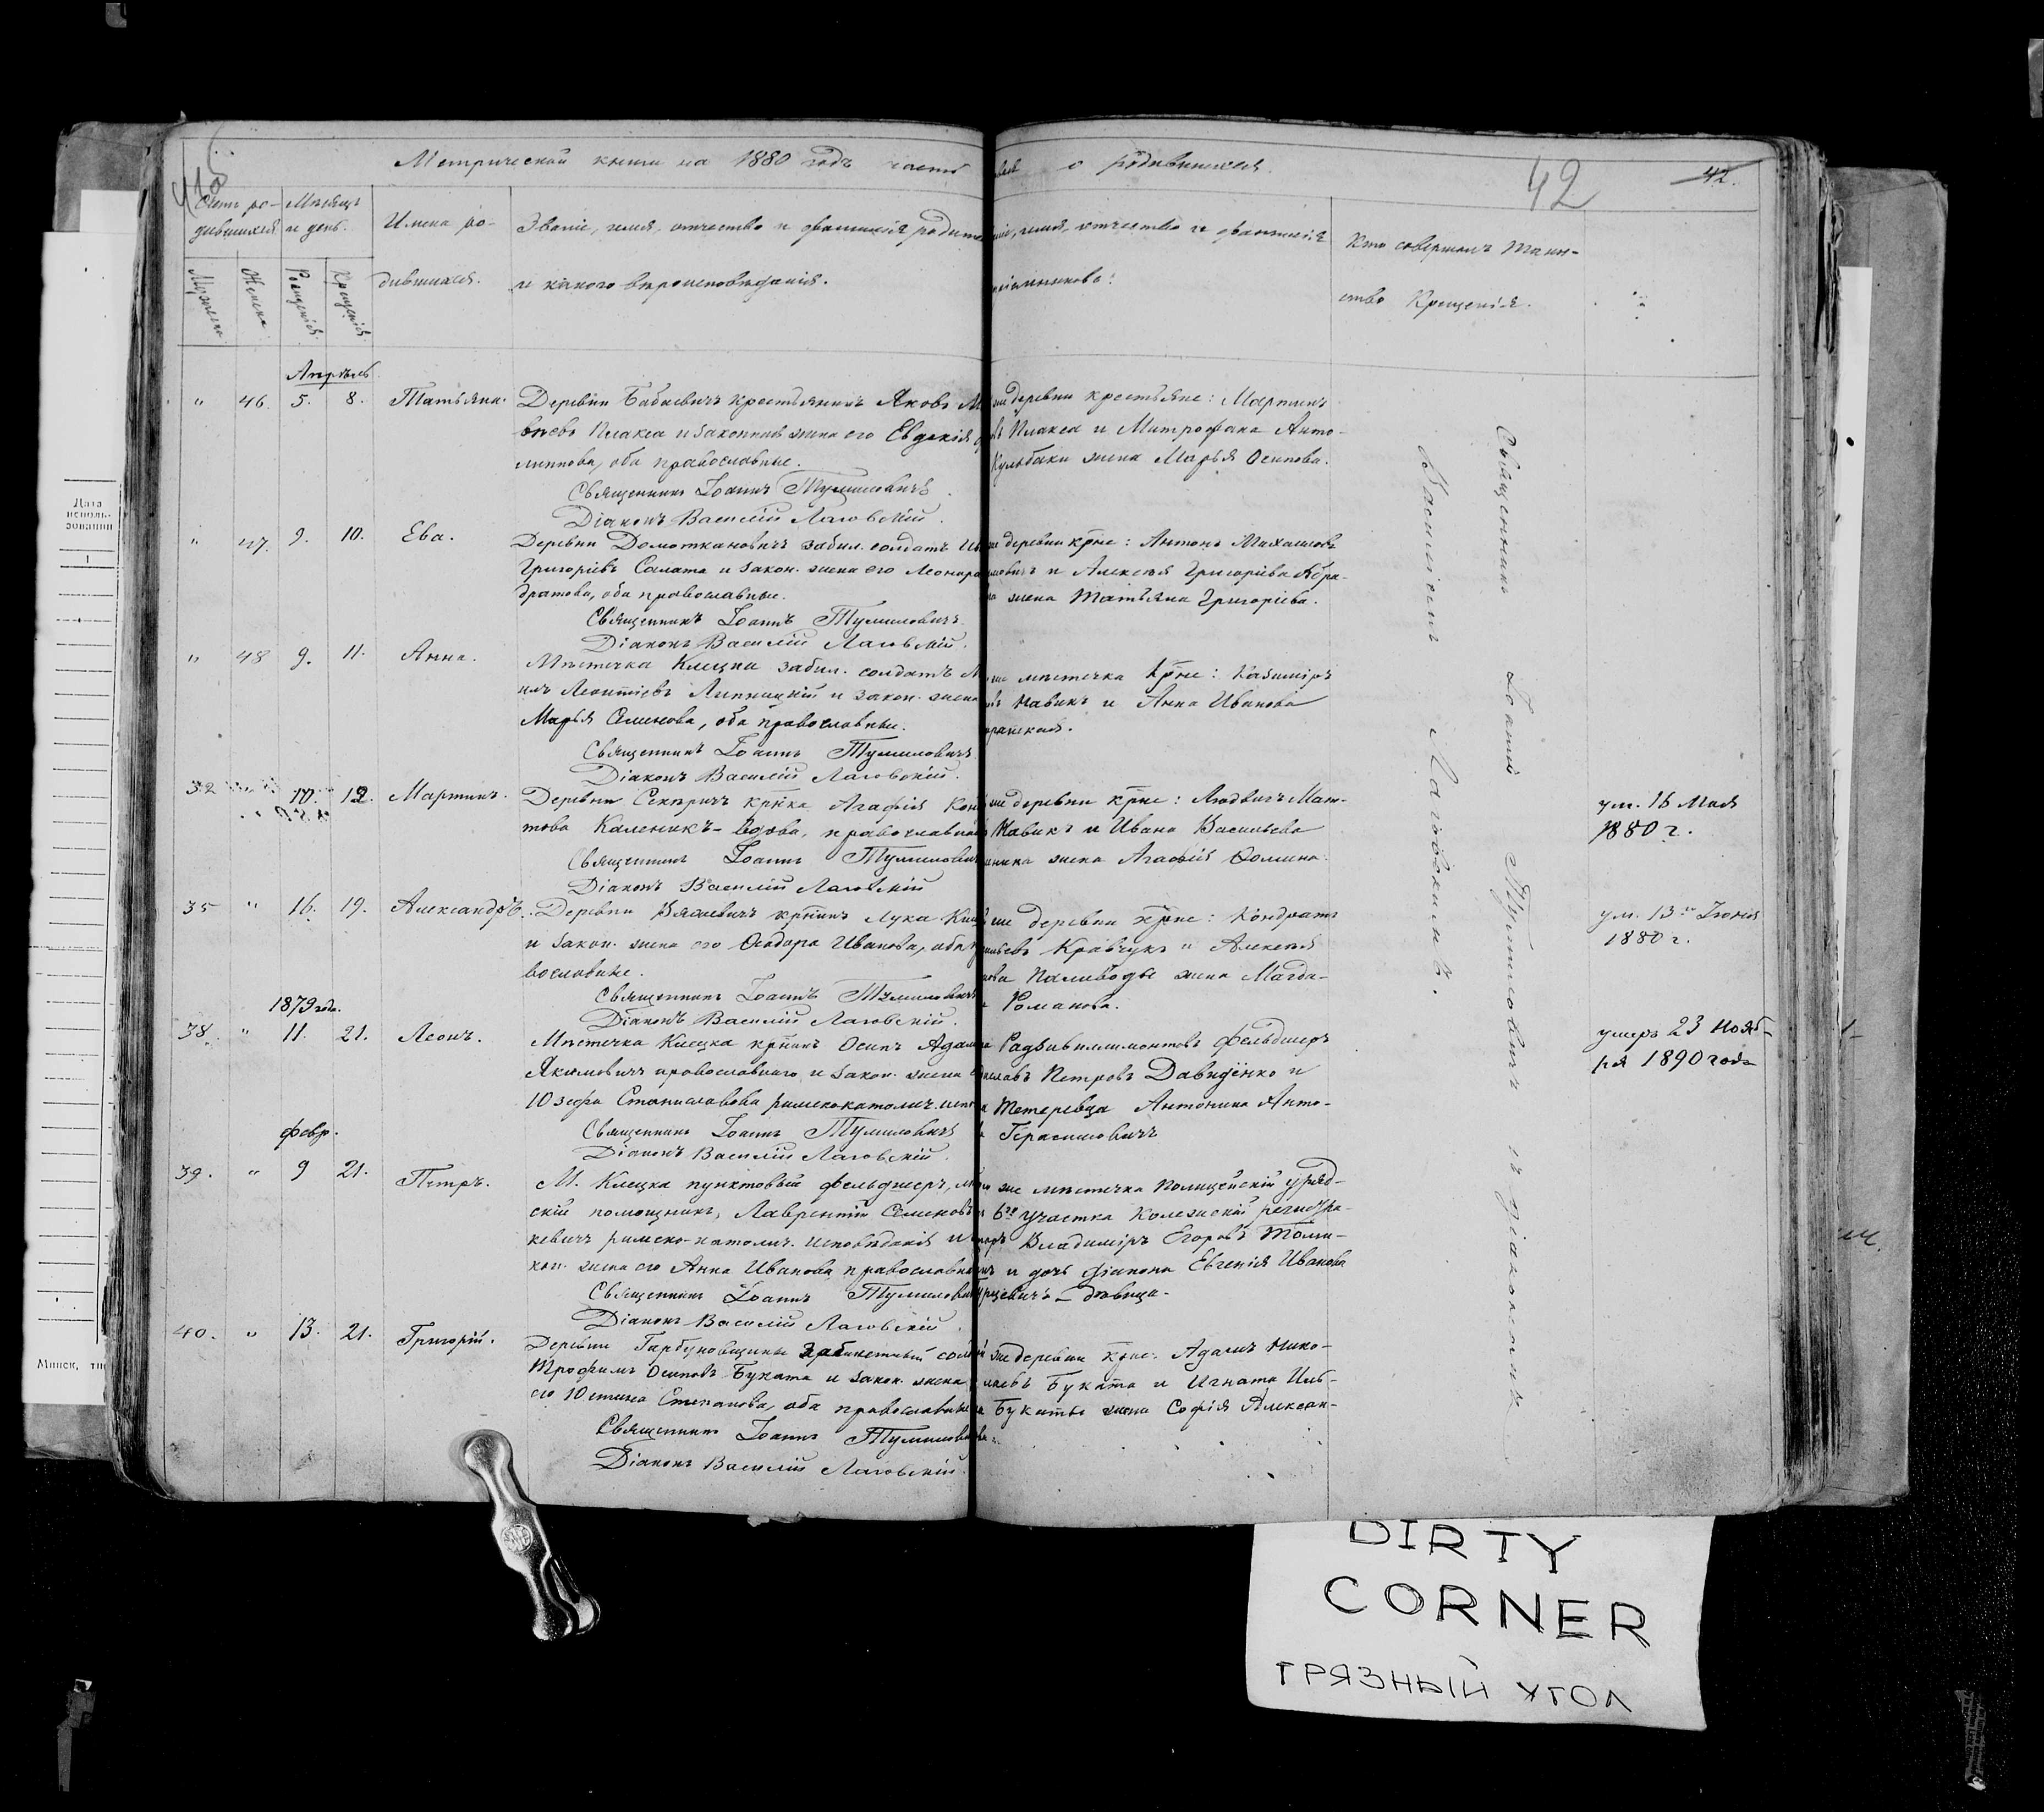 Метрической книги на 1880 годъ часть
о родившихся.
42
42.
Счетъ ро-
дившихся
Мѣсяцъ
и день.
Имена ро-
дившихся.
Званіе, имя, отчество и фамилія родите
и какого вѣроисповѣданія.
имя, отчество и фамилія
Кто совершалъ Таин-
ство Крещенія.
Мужеска
Женска
Рожденія
Крещенія
Апрѣль
" 46. 5. 8. Татьяна.
Деревни Бабаевичъ крестьянинъ Яковъ М
вѣевъ Плакса и законная жена его Евдокія
липпова, оба православные.
Священникъ Іоаннъ Тумиловичъ
Діаконъ Василій Лаговскій.
деревни крестьяне: Мартинъ
въ Плакса и Митрофана Анто-
Кульбаки жена Марья Осипова.
" 47. 9. 10. Ева.
Деревни Домоткановичъ забил. солдатъ Ив
Григоріевъ Салата и закон. жена его Леонора
дратова, оба православные.
Священникъ Іоаннъ Тумиловичъ
Діаконъ Василій Лаговскій.
деревни крне: Антонъ Михаиловъ
и Алексѣя Григоріева
жена Татьяна Григоріева.
" 48 9. 11. Анна.
Мѣстечка Клецка забил. солдатъ
Леонтіевъ Липницкій и закон. жена
Марья Семенова, оба православные.
Священникъ Іоаннъ Тумиловичъ
Діаконъ Василій Лаговскій.
мѣстечка крне: Казиміръ
Навикъ и Анна Иванова
32 10. 12. Мартинъ.
Деревни Секеричъ крнка Агафія Кон
това Каленикъ - вдова, православная
Священникъ Іоаннъ Тумилович
Діаконъ Василій Лаговскій
деревни крне: Людвигъ Мат-
Навикъ и Ивана Васильева
жена Агафія Фомина.
ум. 16 Мая
1880 г.
35 " 16. 19. Александръ.
Деревни крнинъ Лука
и закон. жена его Феодора Иванова, оба п
вославные.
Священникъ Іоаннъ Тумиловичъ
Діаконъ Василій Лаговскій.
деревни крне: Кондратъ
Кравчукъ и Алексѣя
Паливоды жена Магда-
Романова.
ум. 13 Іюня
1880 г.
1879 года.
38. " 11. 21. Леонъ.
Мѣстечка Клецка крнинъ Осипъ Адам
Якимовичъ православнаго и закон. жена
Юзефа Станиславова римскокатолич. испо
Священникъ Іоаннъ Тумиловичъ
Діаконъ Василій Лаговскій.
Радзивиллимонтовъ фельдшеръ
Петровъ Давиденко и
Тетеревца Антонина Анто-
Герасимовичъ
умеръ 23 Нояб-
ря 1890 года
февр.
39. " 9 21. Петръ.
М. Клецка пунктовый фельдшеръ,
скій помощникъ, Лаврентій Семеновъ
кевичъ римско-католич. исповѣданія и
кон. жена его Анна Иванова православной
Священникъ Іоаннъ Тумилович
Діаконъ Василій Лаговскій.
же мѣстечка Полицейскій уряд-
6го участка Колежскій регистра-
Владиміръ Егоровъ
и дочь діакона Евгенія Иванова
дѣвица.
40. " 13. 21. Григорій.
Деревни Гарбуновщины забилетный сол
Трофимъ Осиповъ Буката и закон. жена
его Юстина Степанова, оба православные
Священникъ Іоаннъ Тумилов
Діаконъ Василій Лаговскій.
же деревни крне: Адамъ Нико-
лаевъ Буката и Игната Иль-
Букаты жена Софія Алексан-
Священникъ Іоаннъ Тумиловичъ съ діакономъ
Василіемъ Лаговскимъ.
Дата
исполь-
зования
Минск, ти
DIRTY
CORNER
ГРЯЗНЫЙ УГОЛ